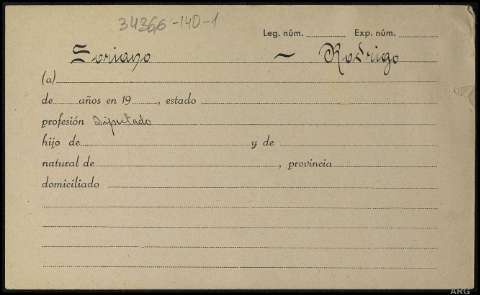 34366-140-1
Leg. núm. Exp. núm.
Soriano ~ Rodrigo
(a)
de años en 19 , estado
profesión Diputado
hijo de y de
natural de , provincia
domiciliado
ARG